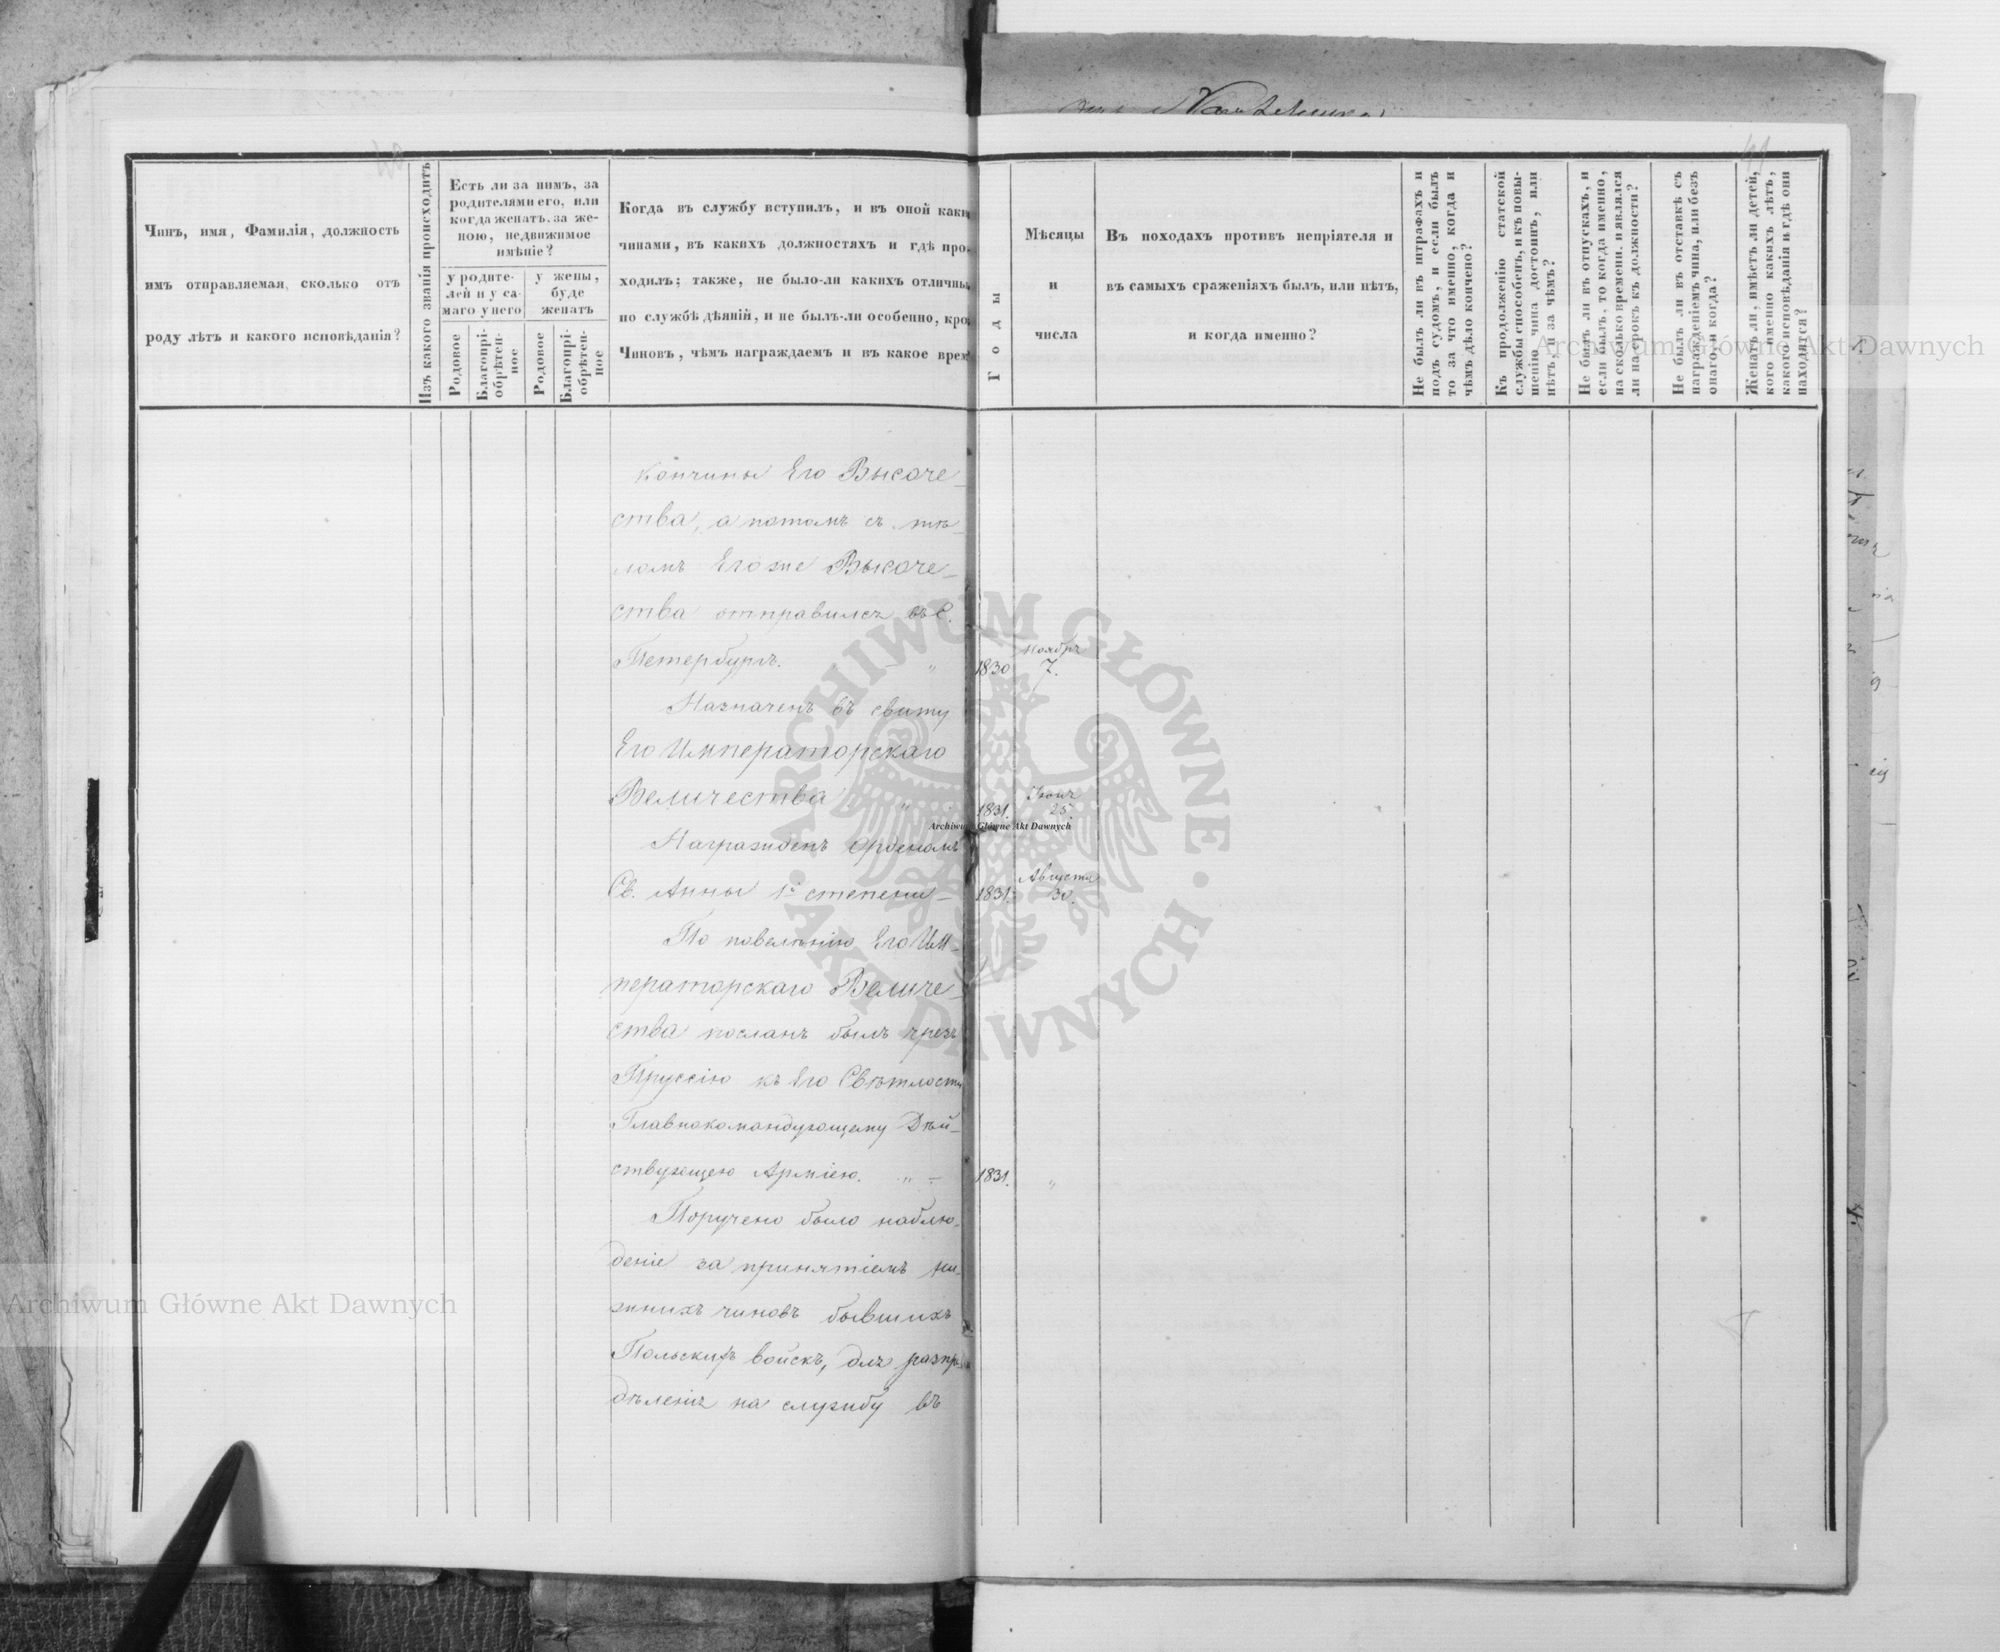 Чинъ, имя, Фамилія, должность
имъ отправляемая, сколько отъ
роду лѣтъ и какого исповѣданія?
Изъ какого званія происходитъ
Есть ли за нимъ, за
родителями его, или
когда женатъ, за же-
ною, недвижимое
имѣніе?
у родите-
лей и у са-
маго у него
у жены,
буде
женатъ
Родовое
Благопрі-
обрѣтен-
ное
Родовое
Благопрі-
обрѣтен-
ное
Когда въ службу вступилъ, и въ оной каки
чинами, въ какихъ должностяхъ и гдѣ про-
ходилъ; также, не было-ли какихъ отличны
по службѣ дѣяній, и не былъ-ли особенно, кро
Чиновъ, чѣмъ награждаемъ и въ какое врем
Годы
Мѣсяцы
и
числа
Въ походахъ противъ непріятеля и
въ самыхъ сраженіяхъ былъ, или нѣтъ,
и когда именно?
Не былъ ли въ штрафахъ и
подъ судомъ, и если былъ
то за что именно, когда и
чѣмъ дѣло кончено?
Къ продолженію статской
службы способенъ, и къ повы-
шенію чина достоинъ, или
нѣтъ, и за чѣмъ?
Не былъ ли въ отпускахъ, и
если былъ, то когда именно,
на сколько времени, и являлся
ли на срокъ къ должности?
Не былъ ли въ отставкѣ съ
награжденіемъ чина, или безъ
онаго, и когда?
Женатъ ли, имѣетъ ли дѣтей,
кого именно какихъ лѣтъ,
какого исповѣданія и гдѣ они
находятся?
кончины Его Высоче-
ства, а потомъ съ тѣ-
ломъ Его же Высоче-
ства отправился въ С.
Петербургъ. " 1830 Ноябрь 7.
Назначенъ въ свиту
Его Императорскаго
Величества " 1831. Іюня 25.
Награжденъ Орденомъ
Св. Анны 1й степени - 1831. Августа 30.
По повелѣнію Его Им-
ператорскаго Величе-
ства посланъ былъ чрезъ
Пруссію къ Его Свѣтлости
Главнокомандующему Дѣй-
ствующею Арміею. " - 1831. "
Поручено было наблю-
деніе за принятіемъ ни-
жнихъ чиновъ бывшихъ
Польскихъ войскъ, для распре
дѣленія на службу въ
Archiwum Główne Akt Dawnych
Archiwum Główne Akt Dawnych
Archiwum Główne Akt Dawnych
ARCHIWUM GŁÓWNE · AKT DAWNYCH ·